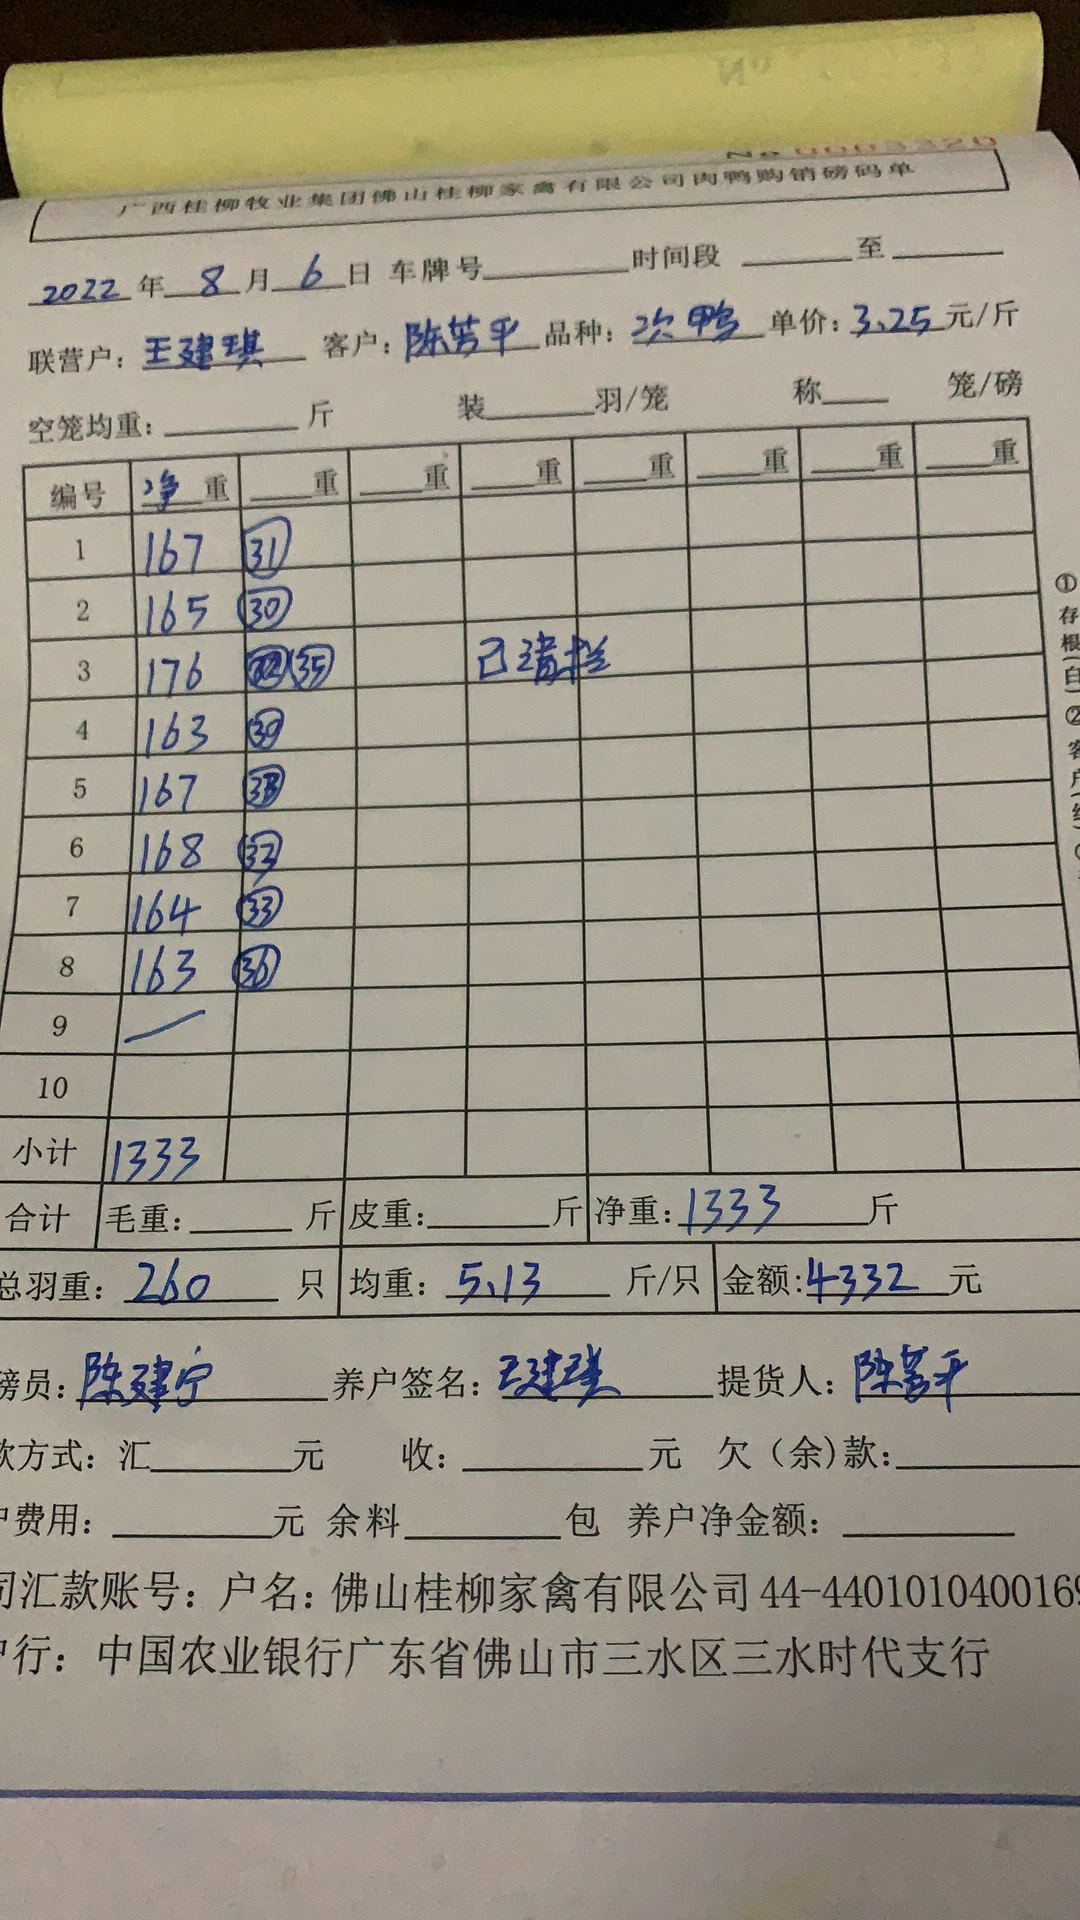 No 0003320
广西桂柳牧业集团佛山桂柳家禽有限公司肉鸭购销磅码单
2022年8月6日 车牌号 时间段 至
联营户：王建琪 客户：陈芳平 品种：次鸭 单价：3.25元/斤
空笼均重： 斤 装 羽/笼 称 笼/磅
编号 净重 重 重 重 重 重 重 重
1 167 31
2 165 30
3 176 35 已清栏
4 163
5 167
6 168 32
7 164 33
8 163 36
9
10
小计 1333
合计 毛重： 斤 皮重： 斤 净重：1333 斤
总羽重：260 只 均重：5.13 斤/只 金额：4332 元
磅员：陈建宁 养户签名：王建琪 提货人：陈芳平
款方式：汇 元 收： 元 欠（余）款：
户费用： 元 余料 包 养户净金额：
司汇款账号：户名：佛山桂柳家禽有限公司 44-440101040016
户行：中国农业银行广东省佛山市三水区三水时代支行
①存根(白)②客户(